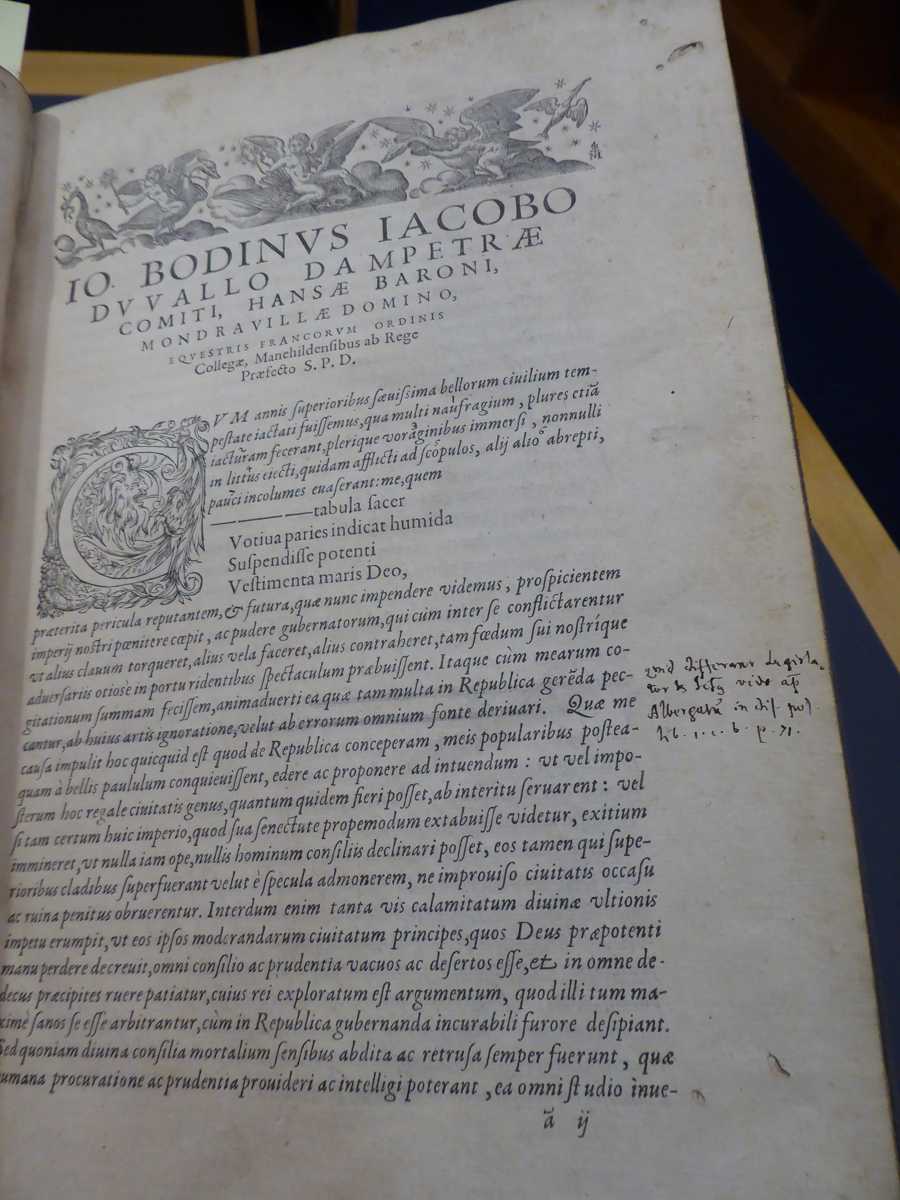 IO. BODINVS IACOBO
DVVALLO DAMPETRÆ
COMITI, HANSÆ BARONI,
MONDRAVILLÆ DOMINO,
EQVESTRIS FRANCORVM ORDINIS
Collegæ, Manehildenſibus ab Rege
Præfecto S. P. D.
CVM annis ſuperioribus ſæuiſsima bellorum ciuilium tem-
peſtate iactati fuiſſemus, qua multi naufragium, plures etiã
iacturam fecerant, plerique voraginibus immerſi, nonnulli
in littus eiecti, quidam afflicti ad ſcopulos, alij aliò abrepti,
pauci incolumes euaſerant: me, quem
————tabula ſacer
Votiua paries indicat humida
Suſpendiſſe potenti
Veſtimenta maris Deo,
præterita pericula reputantem, & futura, quæ nunc impendere videmus, proſpicientem
imperij noſtri pœnitere cœpit, ac pudere gubernatorum, qui cùm inter ſe conflictarentur
vt alius clauum torqueret, alius vela faceret, alius contraheret, tam fœdum ſui noſtríque
aduerſariis otiosè in portu ridentibus ſpectaculum præbuiſſent. Itaque cùm mearum co-
gitationum ſummam feciſſem, animaduerti ea quæ tam multa in Republica gerẽda pec-
cantur, ab huius artis ignoratione, velut ab errorum omnium fonte deriuari. Quæ me
cauſa impulit hoc quicquid eſt quod de Republica conceperam, meis popularibus poſtea-
quam à bellis paululum conquieuiſſent, edere ac proponere ad intuendum: vt vel impo-
ſterum hoc regale ciuitatis genus, quantum quidem fieri poſſet, ab interitu ſeruarent: vel
ſi tam certum huic imperio, quod ſua ſenectute propemodum extabuiſſe videtur, exitium
immineret, vt nulla iam ope, nullis hominum conſiliis declinari poſſet, eos tamen qui ſupe-
rioribus cladibus ſuperfuerant velut è ſpecula admonerem, ne improuiſo ciuitatis occaſu
ac ruina penitus obruerentur. Interdum enim tanta vis calamitatum diuinæ vltionis
impetu erumpit, vt eos ipſos moderandarum ciuitatum principes, quos Deus præpotenti
manu perdere decreuit, omni conſilio ac prudentia vacuos ac deſertos eſſe, et in omne de-
decus præcipites ruere patiatur, cuius rei exploratum eſt argumentum, quod illi tum ma-
ximè ſanos ſe eſſe arbitrantur, cùm in Republica gubernanda incurabili furore deſipiant.
Sed quoniam diuina conſilia mortalium ſenſibus abdita ac retruſa ſemper fuerunt, quæ
umana procuratione ac prudentia prouideri ac intelligi poterant, ea omni ſtudio inue-
ã ij
quid differant Legisla-
tor & vide ap
Albergatũ in diſ. pol.
lib. 1. c. 6. p. 71.